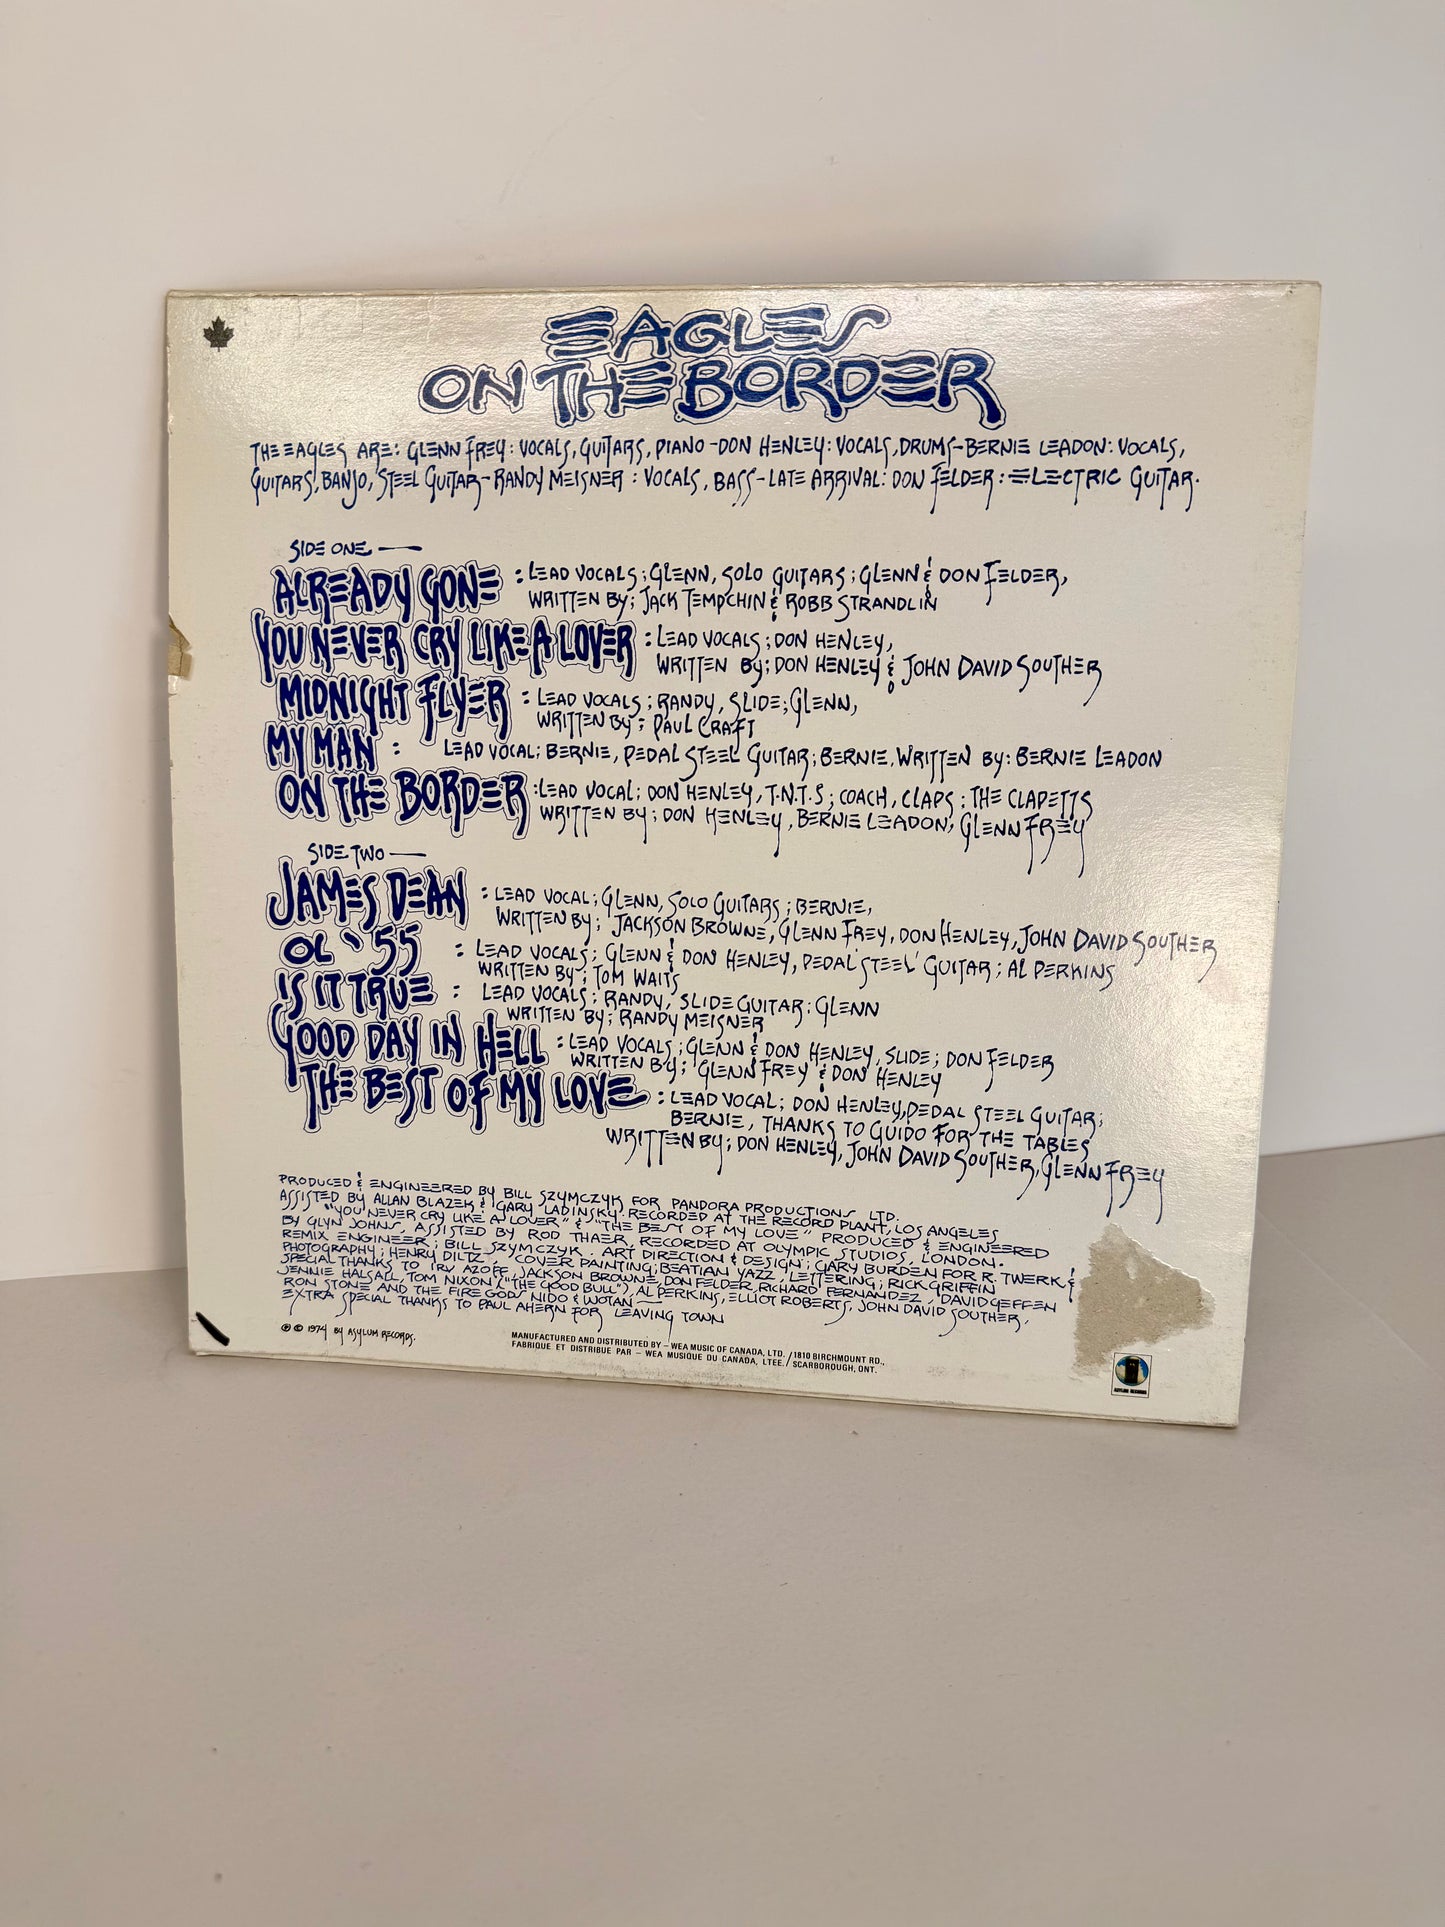 EAGLES
ON THE BORDER
THE EAGLES ARE: GLENN FREY: VOCALS, GUITARS, PIANO-DON HENLEY: VOCALS, DRUMS-BERNIE LEADON: VOCALS,
GUITARS, BANJO, STEEL GUITAR-RANDY MEISNER: VOCALS, BASS-LATE ARRIVAL: DON FELDER: ELECTRIC GUITAR.
SIDE ONE —
ALREADY GONE : LEAD VOCALS; GLENN, SOLO GUITARS; GLENN & DON FELDER,
WRITTEN BY; JACK TEMPCHIN & ROBB STRANDLIN
YOU NEVER CRY LIKE A LOVER : LEAD VOCALS; DON HENLEY,
WRITTEN BY; DON HENLEY & JOHN DAVID SOUTHER
MIDNIGHT FLYER : LEAD VOCALS; RANDY, SLIDE; GLENN,
WRITTEN BY; PAUL CRAFT
MY MAN : LEAD VOCAL; BERNIE, PEDAL STEEL GUITAR; BERNIE, WRITTEN BY: BERNIE LEADON
ON THE BORDER : LEAD VOCAL; DON HENLEY, T.N.T.S; COACH, CLAPS; THE CLAPETTS
WRITTEN BY; DON HENLEY, BERNIE LEADON, GLENN FREY
SIDE TWO —
JAMES DEAN : LEAD VOCAL; GLENN, SOLO GUITARS; BERNIE,
WRITTEN BY; JACKSON BROWNE, GLENN FREY, DON HENLEY, JOHN DAVID SOUTHER
OL '55 : LEAD VOCALS; GLENN & DON HENLEY, PEDAL STEEL GUITAR; AL PERKINS
WRITTEN BY; TOM WAITS
IS IT TRUE : LEAD VOCALS; RANDY, SLIDE GUITAR; GLENN
WRITTEN BY; RANDY MEISNER
GOOD DAY IN HELL : LEAD VOCALS; GLENN & DON HENLEY, SLIDE; DON FELDER
WRITTEN BY; GLENN FREY & DON HENLEY
THE BEST OF MY LOVE : LEAD VOCAL; DON HENLEY, PEDAL STEEL GUITAR;
BERNIE, THANKS TO GUIDO FOR THE TABLES
WRITTEN BY; DON HENLEY, JOHN DAVID SOUTHER, GLENN FREY
PRODUCED & ENGINEERED BY BILL SZYMCZYK FOR PANDORA PRODUCTIONS LTD.
ASSISTED BY ALLAN BLAZEK & GARY LADINSKY. RECORDED AT THE RECORD PLANT, LOS ANGELES
"YOU NEVER CRY LIKE A LOVER" & "THE BEST OF MY LOVE" PRODUCED & ENGINEERED
BY GLYN JOHNS, ASSISTED BY ROD THAER, RECORDED AT OLYMPIC STUDIOS, LONDON.
REMIX ENGINEER; BILL SZYMCZYK. ART DIRECTION & DESIGN; GARY BURDEN FOR R. TWERK &
PHOTOGRAPHY; HENRY DILTZ, COVER PAINTING; BEATIAN YAZZ, LETTERING; RICK GRIFFIN
SPECIAL THANKS TO IRV AZOFF, JACKSON BROWNE, DON FELDER, RICHARD FERNANDEZ, DAVID GEFFEN
JENNIE HALSALL, TOM NIXON ("THE GOOD BULL"), AL PERKINS, ELLIOT ROBERTS, JOHN DAVID SOUTHER,
RON STONE AND THE FIRE GODS NIDO & WOTAN —
EXTRA SPECIAL THANKS TO PAUL AHERN FOR LEAVING TOWN
℗ © 1974 BY ASYLUM RECORDS.
MANUFACTURED AND DISTRIBUTED BY – WEA MUSIC OF CANADA, LTD. / 1810 BIRCHMOUNT RD.,
FABRIQUE ET DISTRIBUE PAR – WEA MUSIQUE DU CANADA, LTEE. / SCARBOROUGH, ONT.
ASYLUM RECORDS